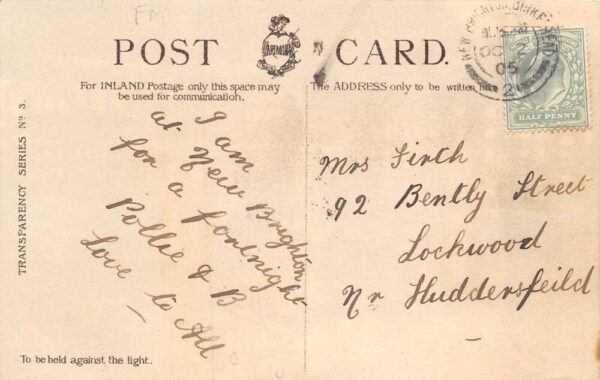 FM
POST CARD.
For INLAND Postage only this space may
be used for communication.
The ADDRESS only to be written here
NEW BRIGHTON
OC 2
05
2
HALF PENNY
TRANSPARENCY SERIES Nº 3.
I am
at New Brighton
for a fortnight
Pollie & B
Love to All
Mrs Firth
92 Bently Street
Lockwood
Nr Huddersfeild
To be held against the light.